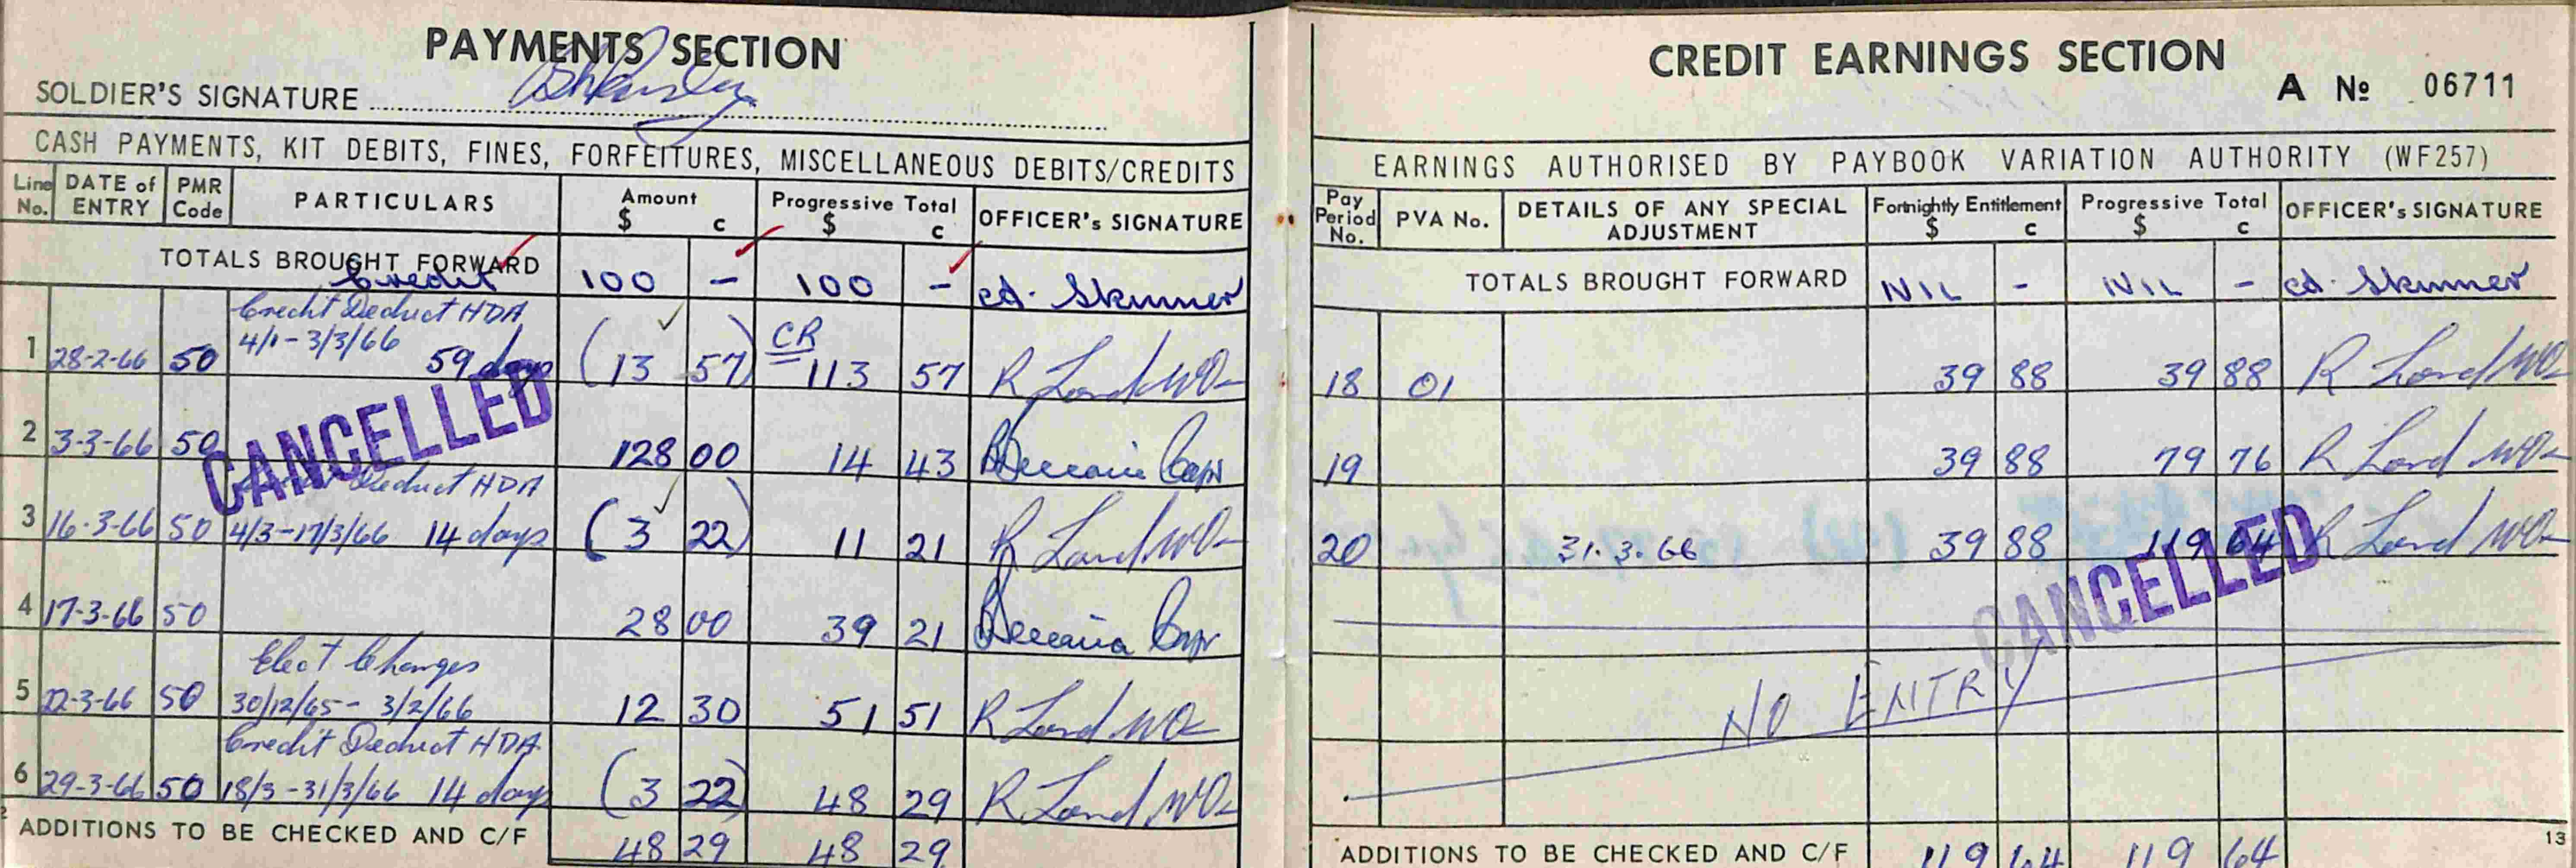 PAYMENTS SECTION
SOLDIER'S SIGNATURE
CASH PAYMENTS, KIT DEBITS, FINES, FORFEITURES, MISCELLANEOUS DEBITS/CREDITS
Line No. DATE of ENTRY PMR Code PARTICULARS Amount $ c Progressive Total $ c OFFICER's SIGNATURE
TOTALS BROUGHT FORWARD Credit 100 - 100 - Ed. Skinner
Credit Deduct HDA
1 28-2-66 50 4/1-3/3/66 59 days (13 57) CR 113 57 R Lond WO
2 3-3-66 50 128 00 14 43 Capt
CANCELLED
Deduct HDA
3 16-3-66 50 4/3-17/3/66 14 days (3 22) 11 21 R Lond WO
4 17-3-66 50 28 00 39 21 Capt
Elect Changes
5 22-3-66 50 30/12/65 - 3/2/66 12 30 51 51 R Lond WO
Credit Deduct HDA
6 29-3-66 50 18/3-31/3/66 14 days (3 22) 48 29 R Lond WO
ADDITIONS TO BE CHECKED AND C/F 48 29 48 29
CREDIT EARNINGS SECTION
A No 06711
EARNINGS AUTHORISED BY PAYBOOK VARIATION AUTHORITY (WF257)
Pay Period No. PVA No. DETAILS OF ANY SPECIAL ADJUSTMENT Fortnightly Entitlement $ c Progressive Total $ c OFFICER's SIGNATURE
TOTALS BROUGHT FORWARD NIL - NIL - Ed. Skinner
18 01 39 88 39 88 R Lond WO
19 39 88 79 76 R Lond WO
20 31.3.66 39 88 119 64 R Lond WO
CANCELLED
NO ENTRY
ADDITIONS TO BE CHECKED AND C/F 119 64 119 64
13